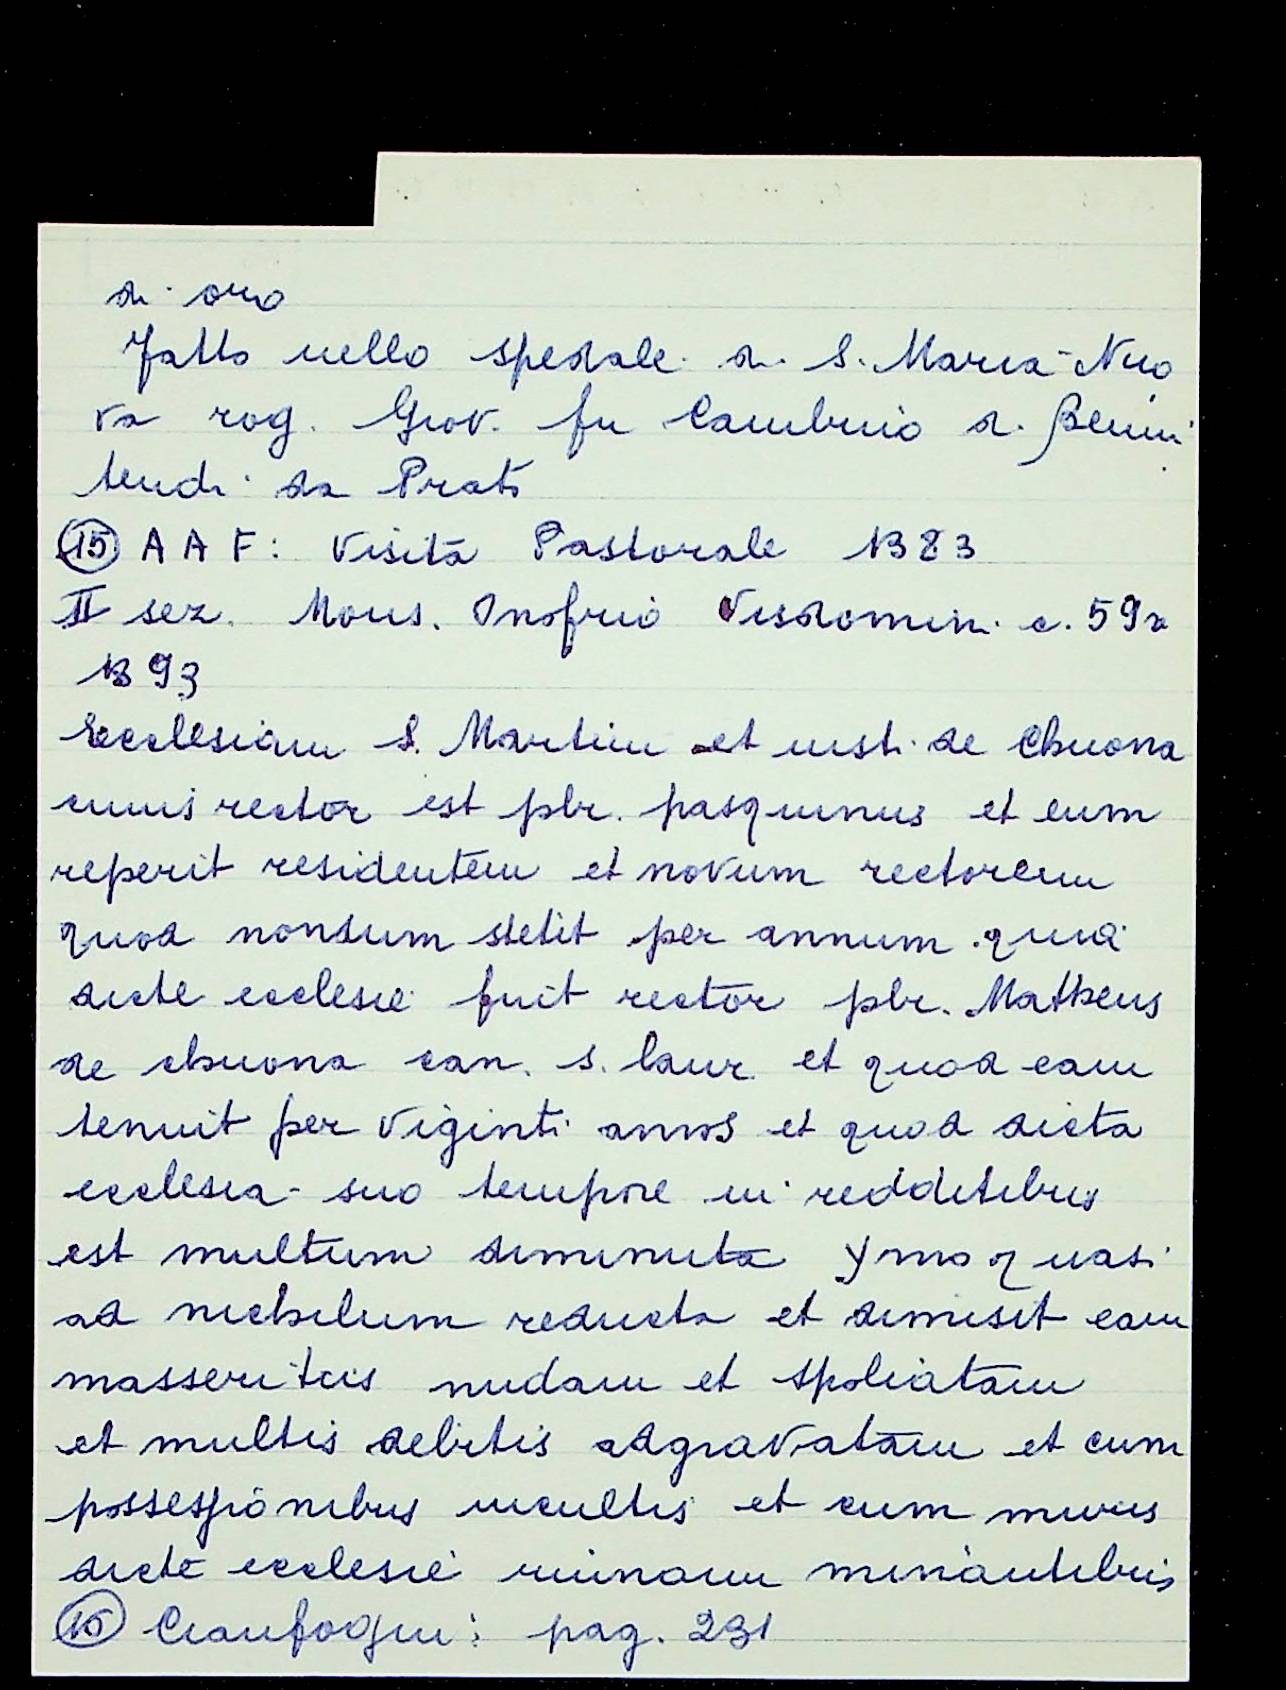 di oro
fatto nello spedale di S. Maria Nuo
va rog. Giov. fu Cambuio di Beniu
tendi da Prato
(15) A A F: Visita Pastorale 1383
II sez. Mons. Onofrio Visdomini c. 59a
1393
Ecclesiam S. Martini et iusti de Ebuona
cuius rector est pbr. pasquinus et eum
reperit residentem et novum rectorem
quod nondum stetit per annum quia
dicte ecclesie fuit rector pbr. Matheus
de ebuona can. s. laur. et quod eam
tenuit per viginti annos et quod dicta
ecclesia suo tempore in redditibus
est multum diminuta ymo quasi
ad nichilum reducta et dimisit eam
masseritiis nudam et spoliatam
et multis debitis adgravatam et cum
possessionibus incultis et cum muris
dicte ecclesie ruinam minantibus
(15) Cianfogni: pag. 231